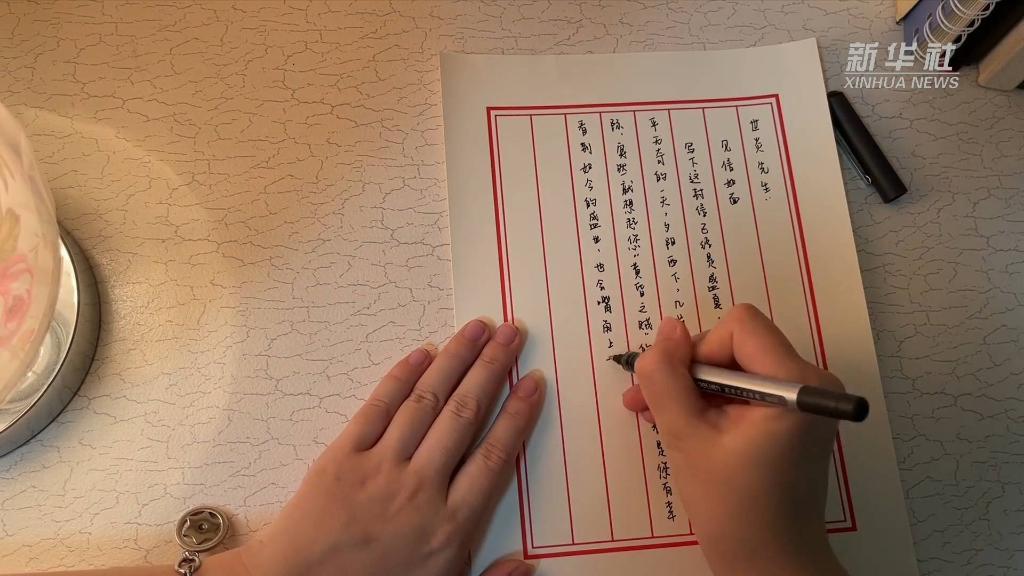 世英先生：
见信如面
写下这封信已然是盛夏
平无奇的一天，夕阳西下，几
你有幸
际，突然就想起你“黄昏之贼”
看到如今的盛世，也会嘴角上
新华社
XINHUA NEWS